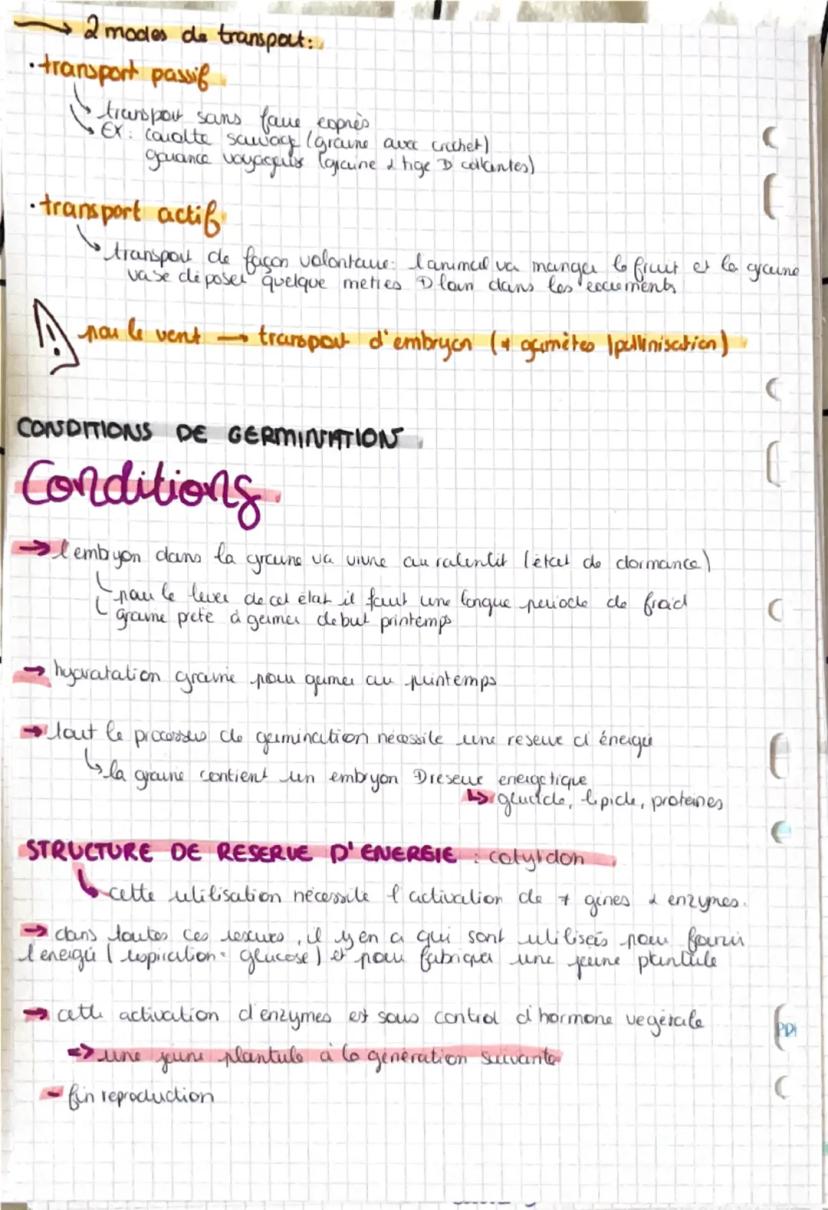 → 2 modes de transport:
· transport passif
↳ transport sans faire exprès
↳ EX: carotte sauvage (graine avec crochet)
garance voyageuse (graine & tige D collantes)
· transport actif
↳ transport de façon volontaire: l'animal va manger le fruit et la graine
va se déposer quelque metres D loin dans les excrements
⚠ par le vent → transport d'embryon (≠ gamètes / pollinisation)
CONDITIONS DE GERMINATION
Conditions
→ l'embryon dans la graine va vivre au ralentit (état de dormance)
↳ pour le lever de cet état il faut une longue periode de froid
↳ graine prete à germer debut printemps
→ hydratation graine pour germer au printemps
→ tout le processus de germination necessite une reserve d'énergie
↳ la graine contient un embryon D reserve energetique
↳ glucide, lipide, proteines
STRUCTURE DE RESERVE D'ENERGIE : cotyldon
↳ cette utilisation necessite l'activation de ≠ gènes & enzymes.
→ dans toutes ces reserves, il y en a qui sont utilisées pour fournir
l'energie (respiration = glucose) et pour fabriquer une jeune plantule
→ cette activation d'enzymes est sous control d'hormone vegetale
=> une jeune plantule à la generation suivante
- fin reproduction